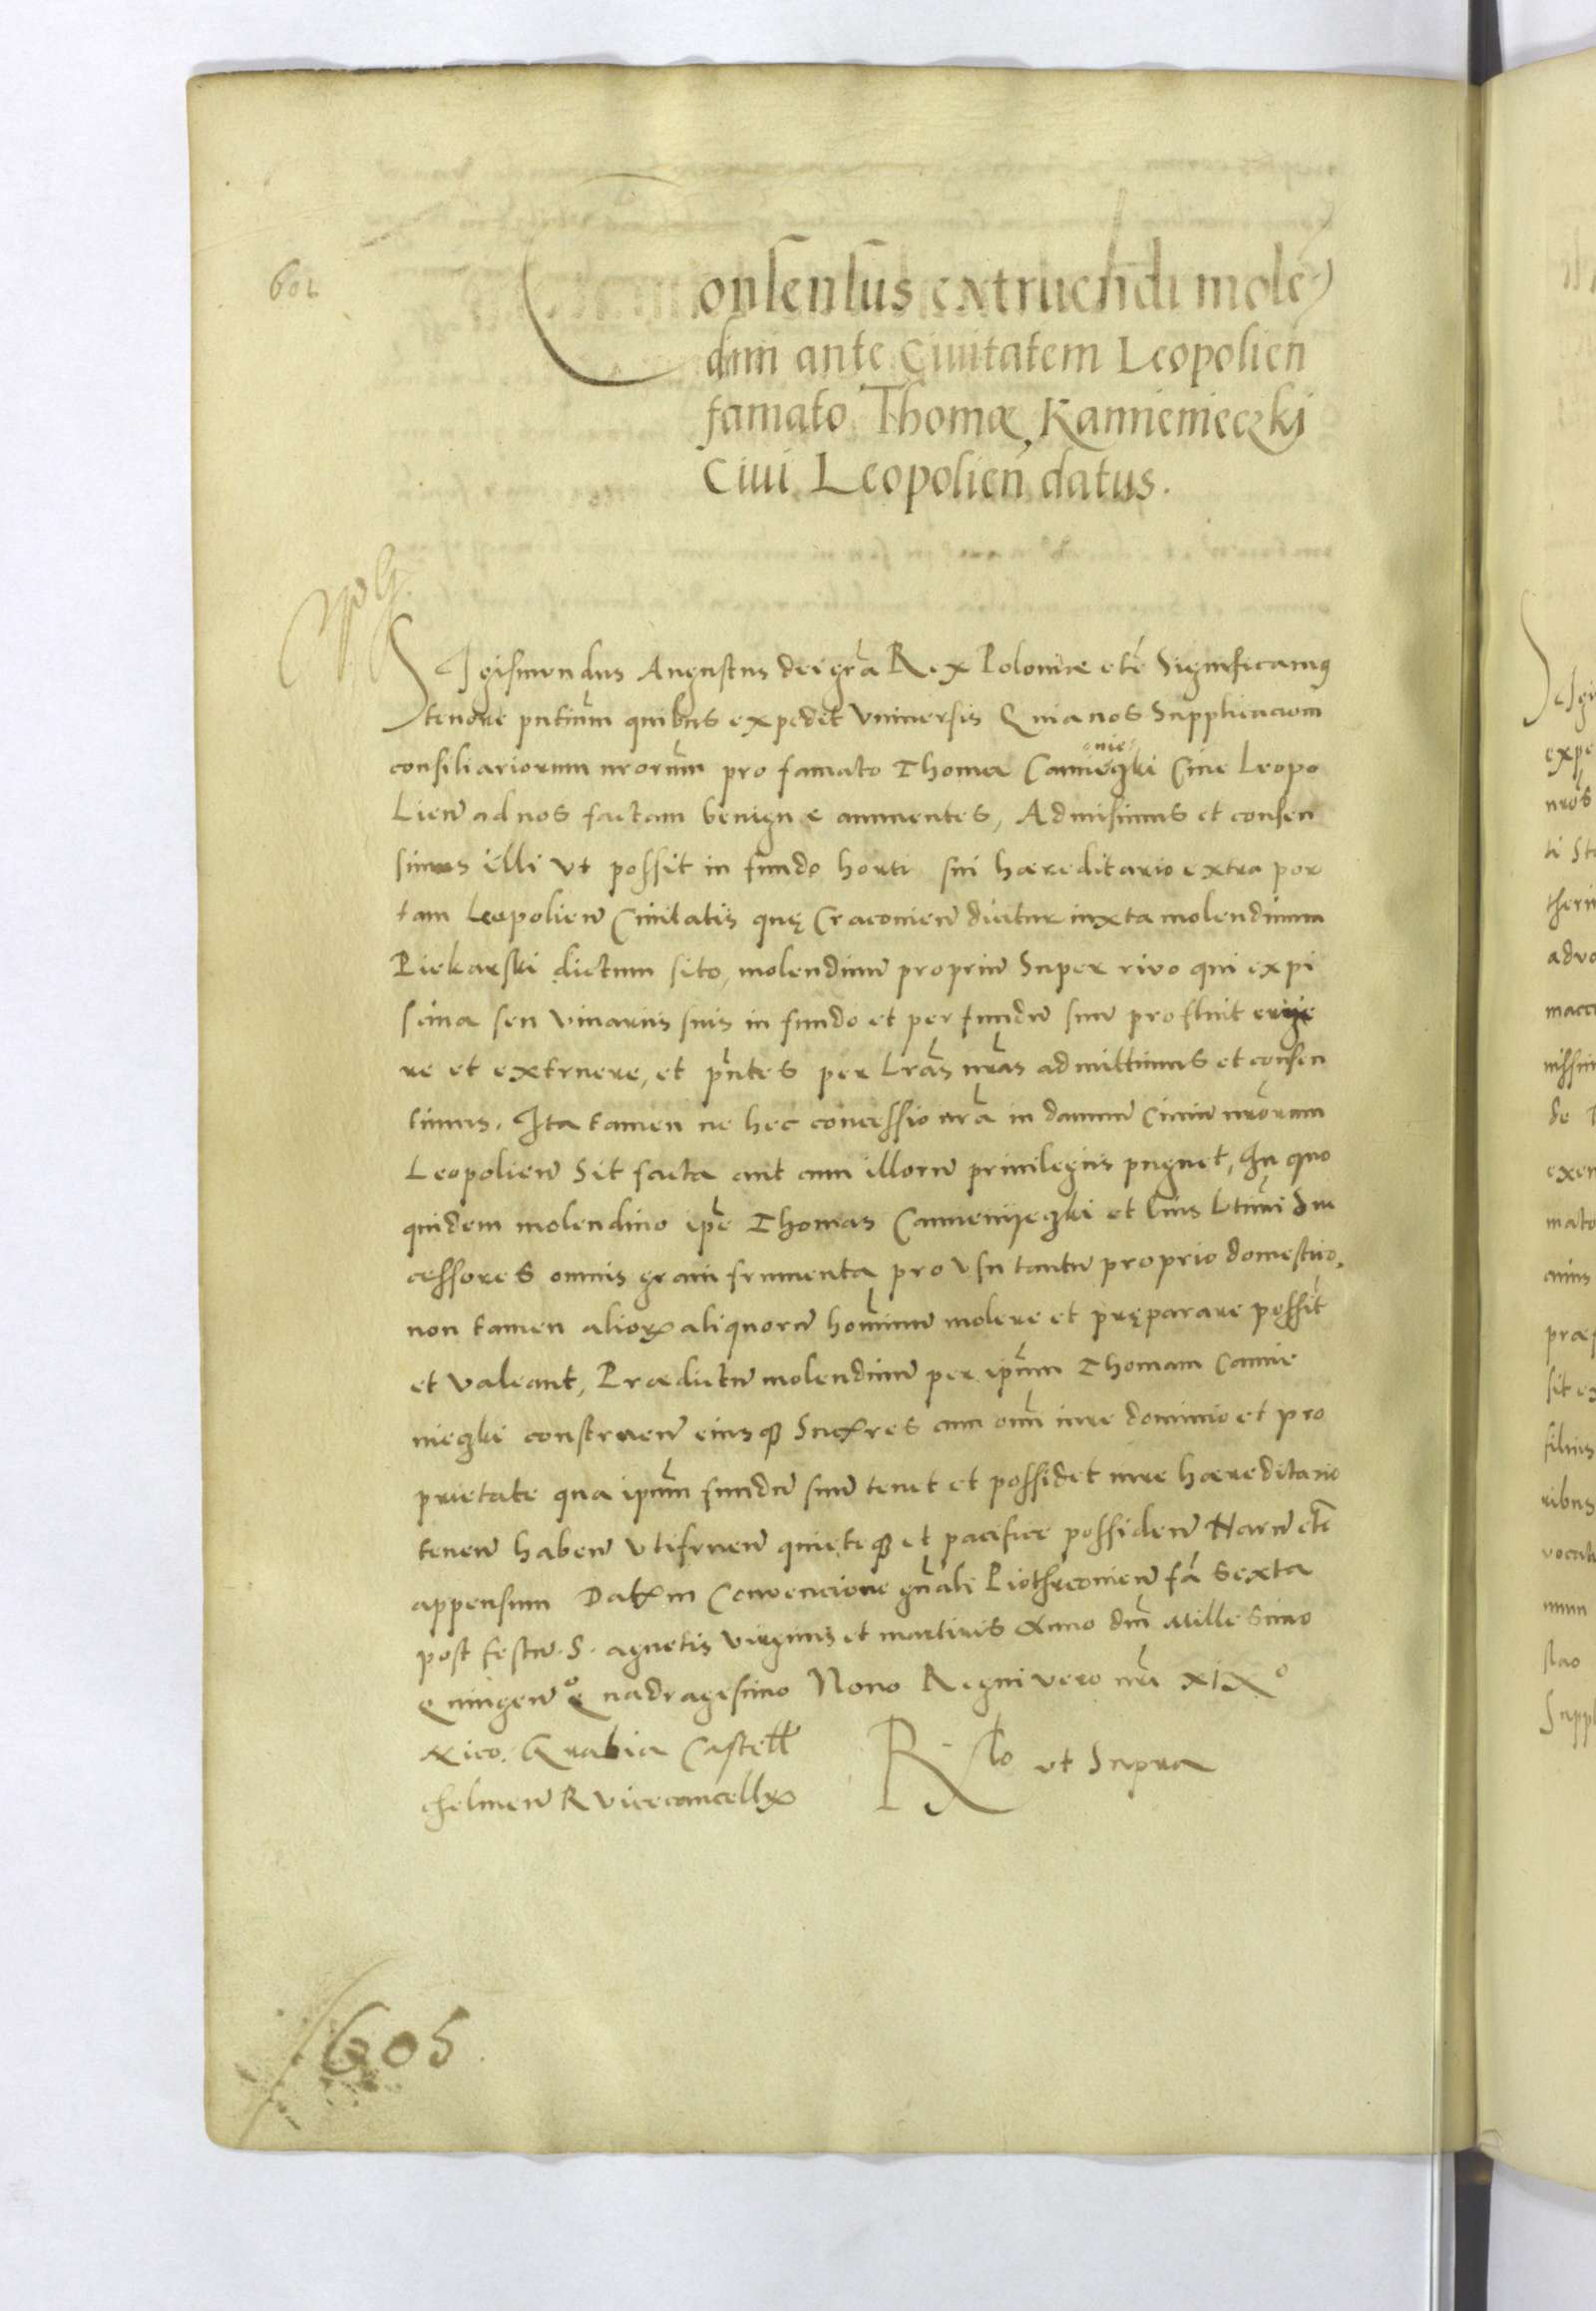 601
Consensus extruendi mole
dini ante Ciuitatem Leopolien̄
famato Thomæ Kamienieczki
Ciui Leopolien̄ datus.
Sigismundus Augustus dei gr̄a Rex Poloniæ etc̄ Significamus
tenore pn̄tium quibus expedit Vniuersis Quia nos Supplicacioni
consiliariorum nrorum̄ pro famato Thoma Camienieczki Ciue Leopo
Lien̄ ad nos factam benigne annuentes, Admisimus et consen
simus illi Vt possit in fundo horti sui hæreditario extra por
tam Leopolien̄ Ciuitatis quę Cracouien̄ dicitur iuxta molendinum
Piekarski dictum sito, molendinū propriū Super riuo qui ex pi
scina seu Viuariis suis in fundo et per fundū suū profluit erige
re et extruere, et pn̄tes per Lrās nrās admittimus et consen
timus. Ita tamen ne hec concessio nrā in damnū Ciuiū nrōrum
Leopolien̄ Sit facta aut cum illorū priuilegiis pugnet, In quo
quidem molendino ipē Thomas Camieniyeczki et Eius Ltimi Suc
cessores omnis grani frumenta pro Vsu tantū proprio domestico,
non tamen alior̄ aliquorū hominū molere et pręparare possit
et Valeant, Prædictū molendinū per ipūm Thomam Camie
nieczki construen̄ eiusq3 Succres cum omī iure dominio et pro
prietate qua ipūm fundū suū tenet et possidet iure hæreditario
tenen̄ haben̄ Vtifruen̄ quieteq3 et pacifice possiden̄ Harū etc̄
appensum Dat̄ in Conuencione gn̄ali Piothrcouien̄ fā Sexta
post festū S. agnetis Virginis et martiris Anno dnī Millesimo
Quingen̄o Quadragesimo Nono Regni vero nrī XIXo
Nico. Grabia Castell̄
chelmen̄ R Vicecancellr̄
R-lo vt Supra
605